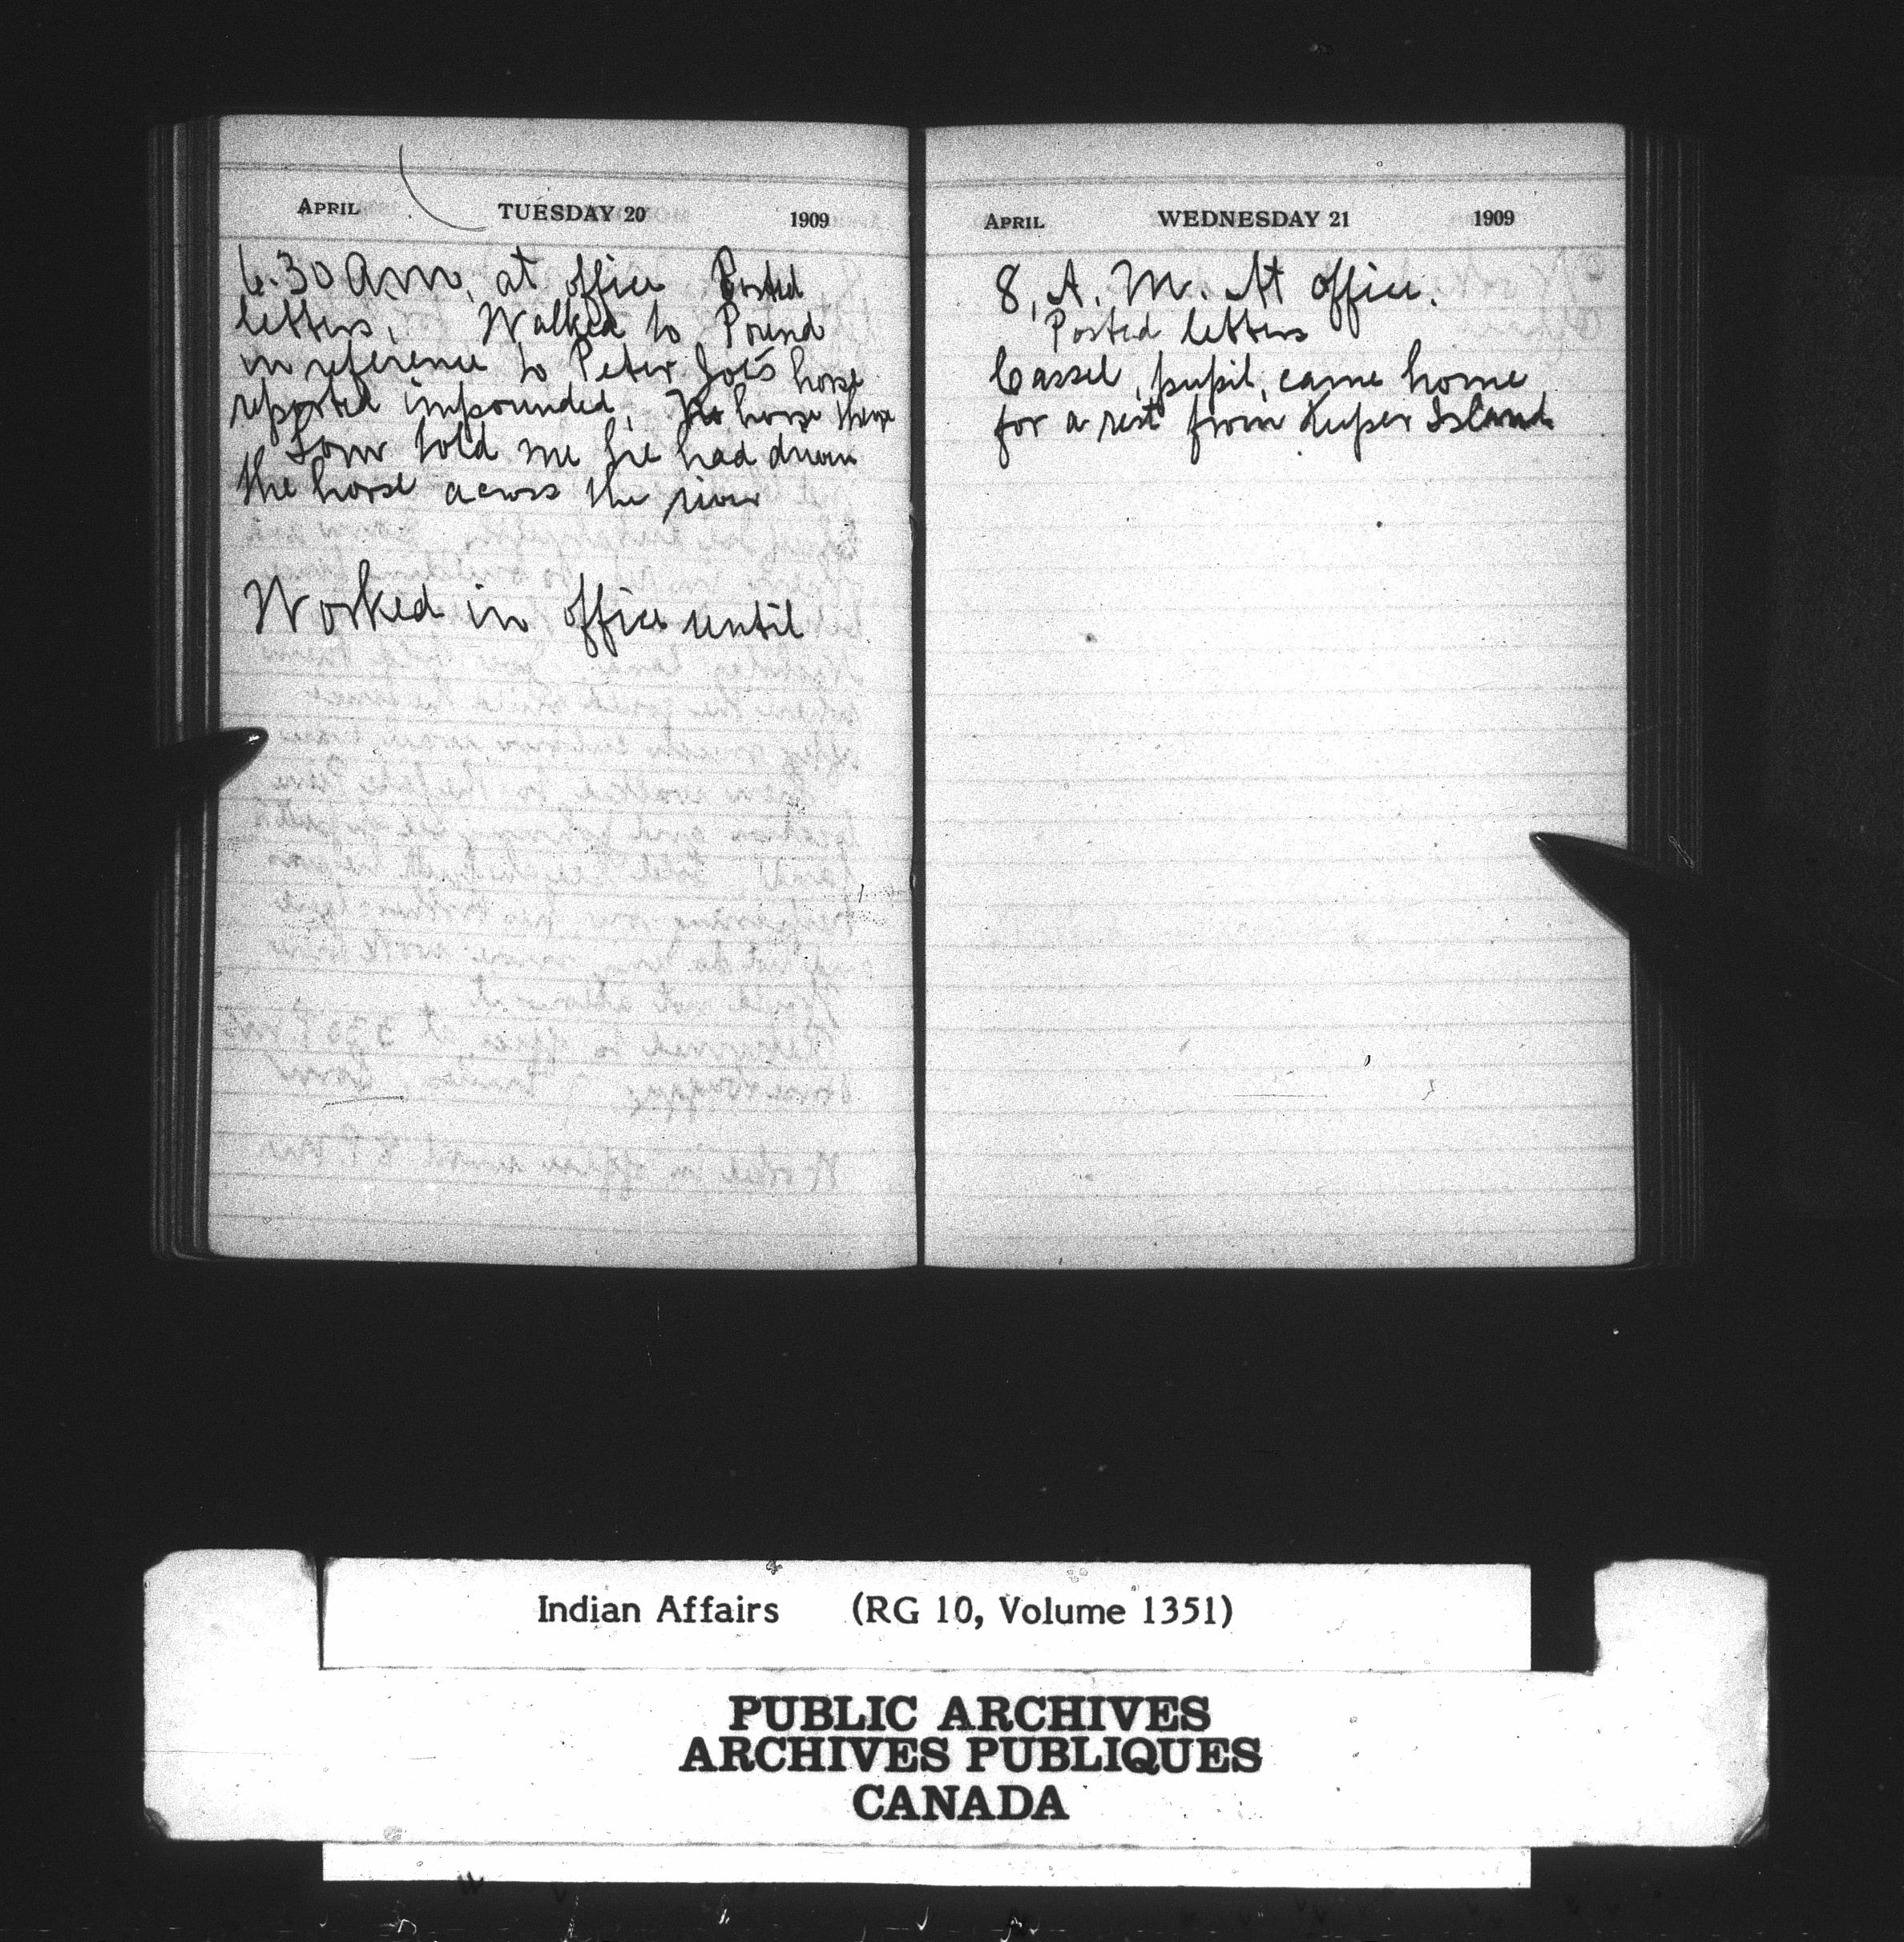 APRIL TUESDAY 20 1909
6.30 A.M. at office Posted
letters, Walked to Pound
in reference to Peter Joe's horse
reported impounded, No horse there
told me he had driven
the horse across the river
Worked in office until
APRIL WEDNESDAY 21 1909
8, A. M. At office.
Posted letters
Cassel, pupil, came home
for a rest from Kuper Island
Indian Affairs (RG 10, Volume 1351)
PUBLIC ARCHIVES
ARCHIVES PUBLIQUES
CANADA